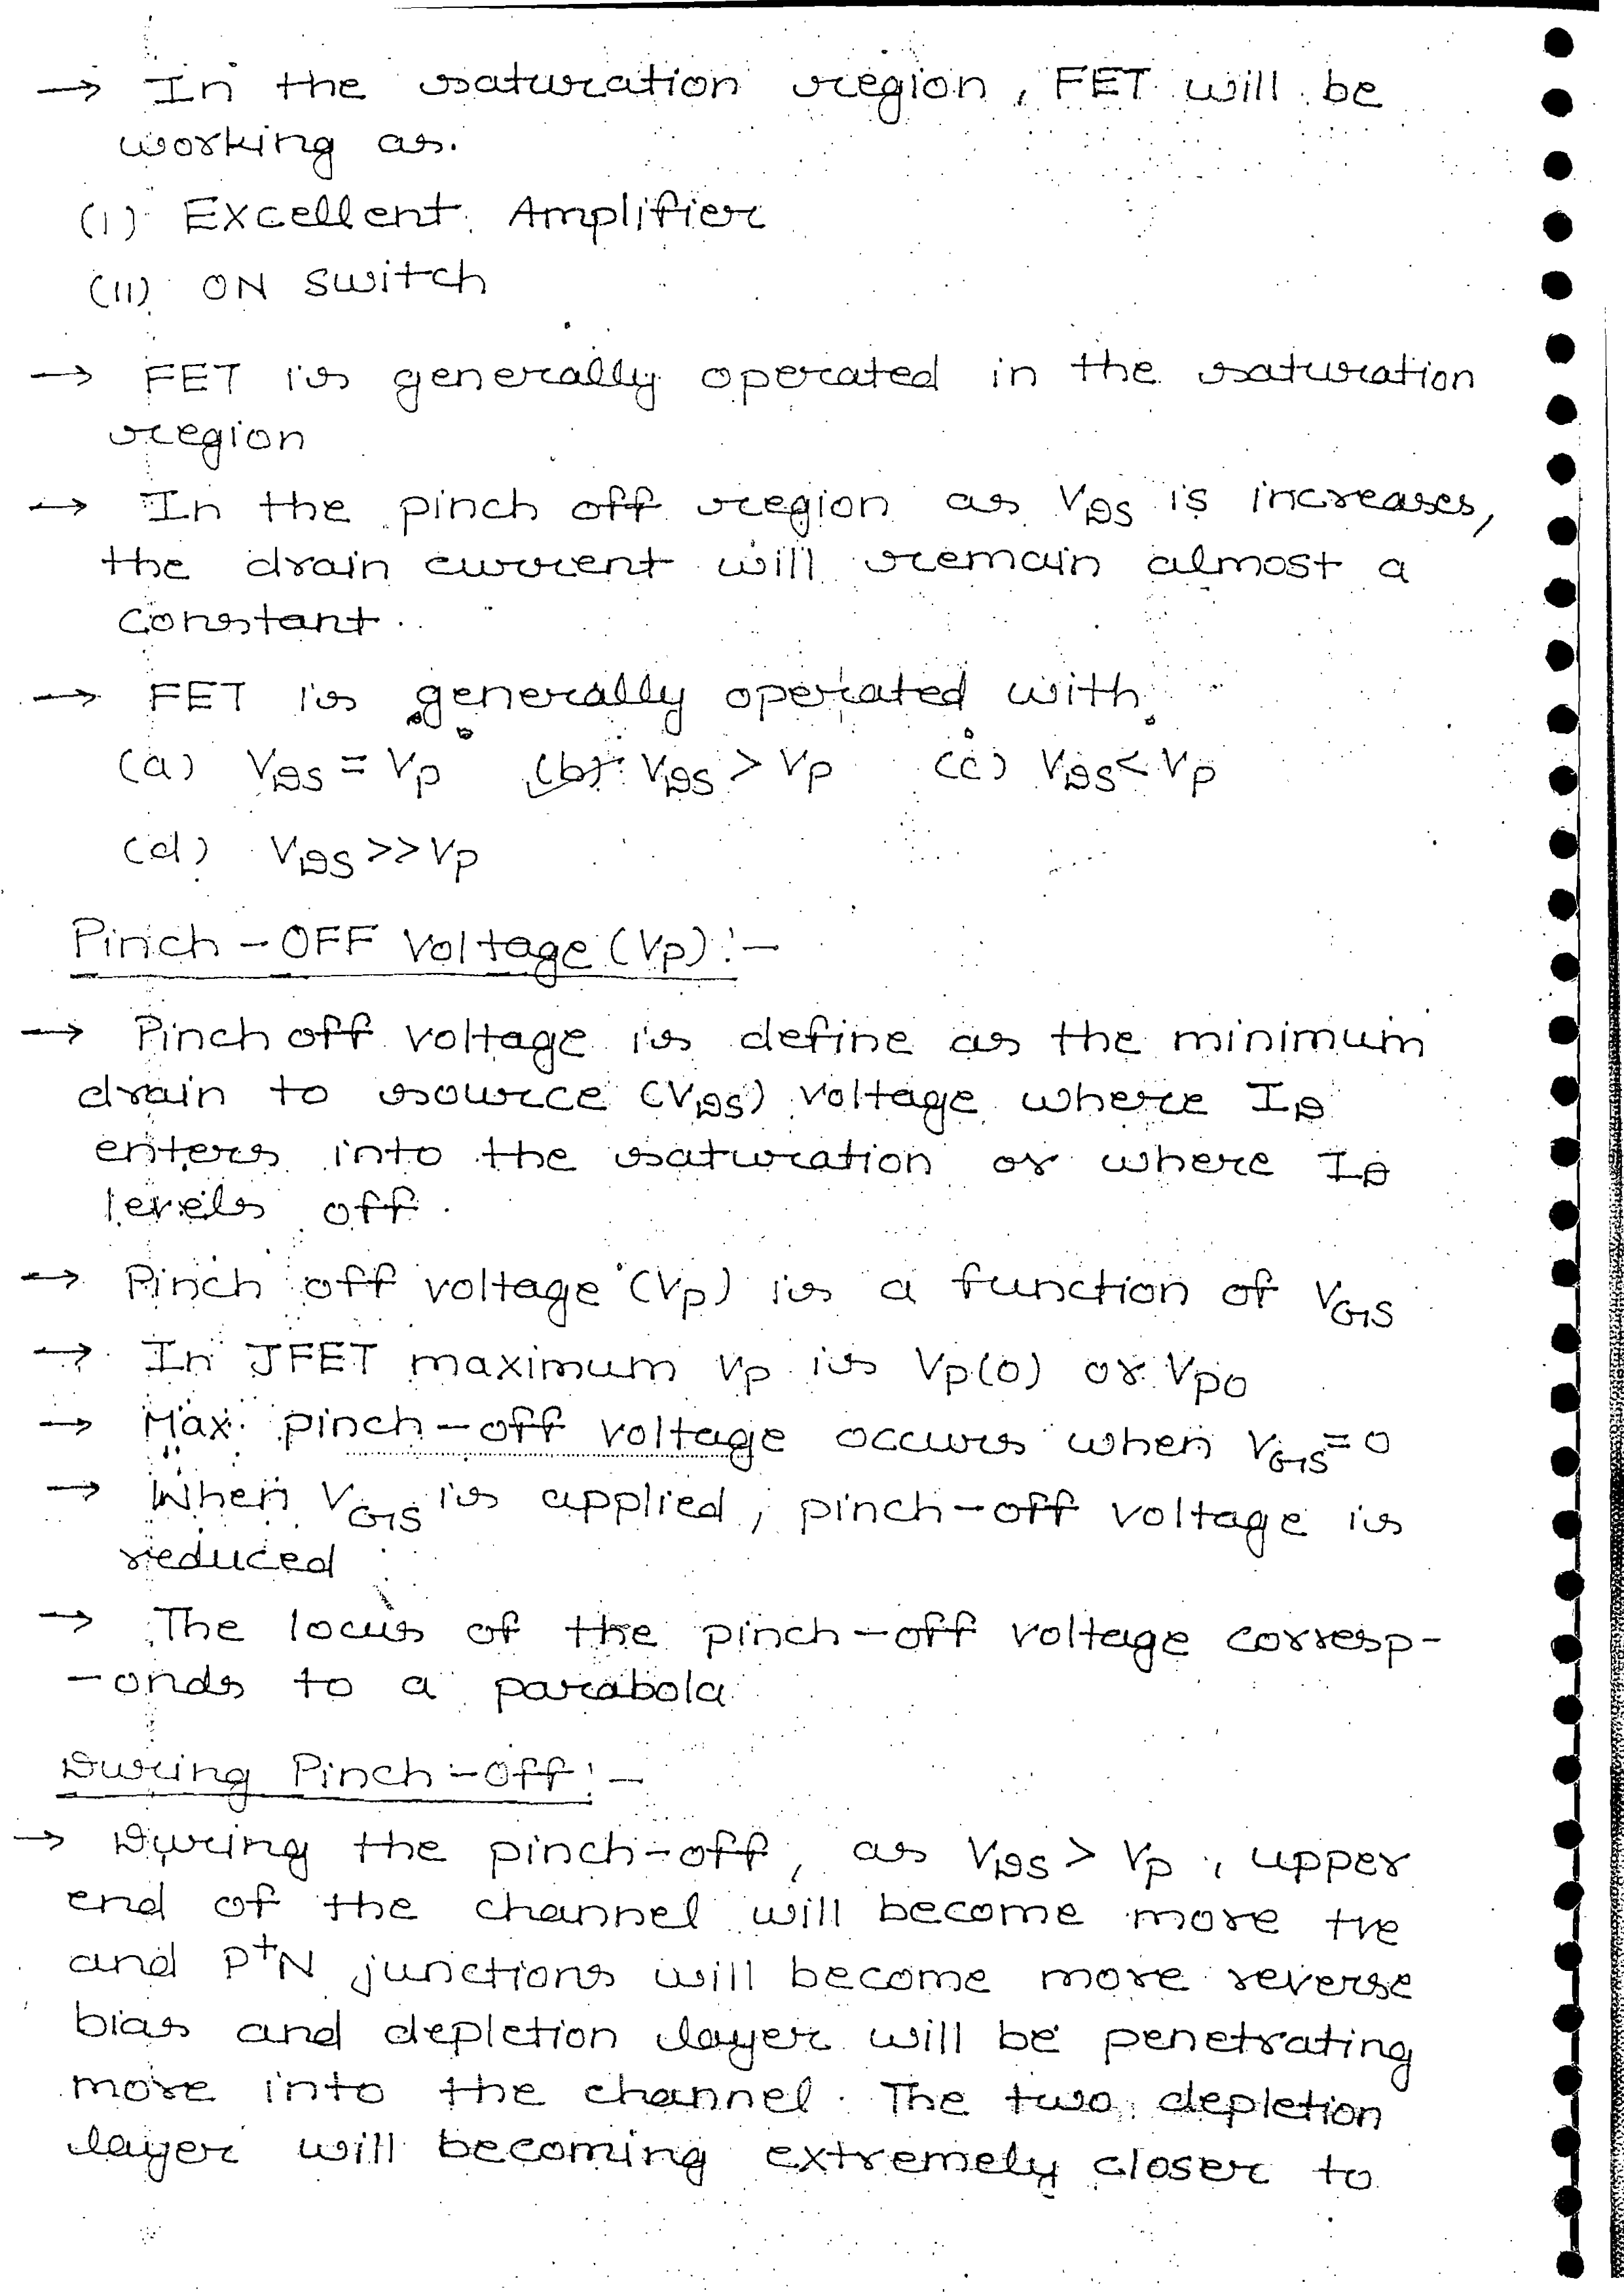 → In the saturation region, FET will be
working as.
(I) Excellent Amplifier
(II) ON switch
→ FET is generally operated in the saturation
region
→ In the pinch off region as VDS is increases,
the drain current will remain almost a
constant.
→ FET is generally operated with
(a) VDS = VP (b) VDS > VP (c) VDS < VP
(d) VDS >> VP
Pinch-OFF Voltage (VP):-
→ Pinch off voltage is define as the minimum
drain to source (VDS) voltage where ID
enters into the saturation or where ID
levels off.
→ Pinch off voltage (VP) is a function of VGS
→ In JFET maximum VP is VP(0) or VPO
→ Max. pinch-off voltage occurs when VGS=0
→ When VGS is applied, pinch-off voltage is
reduced
→ The locus of the pinch-off voltage corresp-
-onds to a parabola
During Pinch-off:-
→ During the pinch-off, as VDS > VP, upper
end of the channel will become more +ve
and P+N junctions will become more reverse
bias and depletion layer will be penetrating
more into the channel. The two depletion
layer will becoming extremely closer to